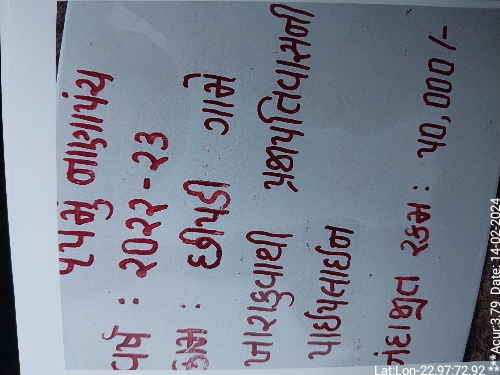 ૧૫મું નાણાપંચ
વર્ષ : ૨૦૨૨-૨૩
કામ : છીપડી ગામે
ખારાકુવાથી પ્રજાપતિવાસની
પાઈપલાઈન
અંદાજીત રકમ : ૫૦,૦૦૦/-
Lat:Lon-22.97:72.92
**Acur:3.79 Date: 14-02-2024 **